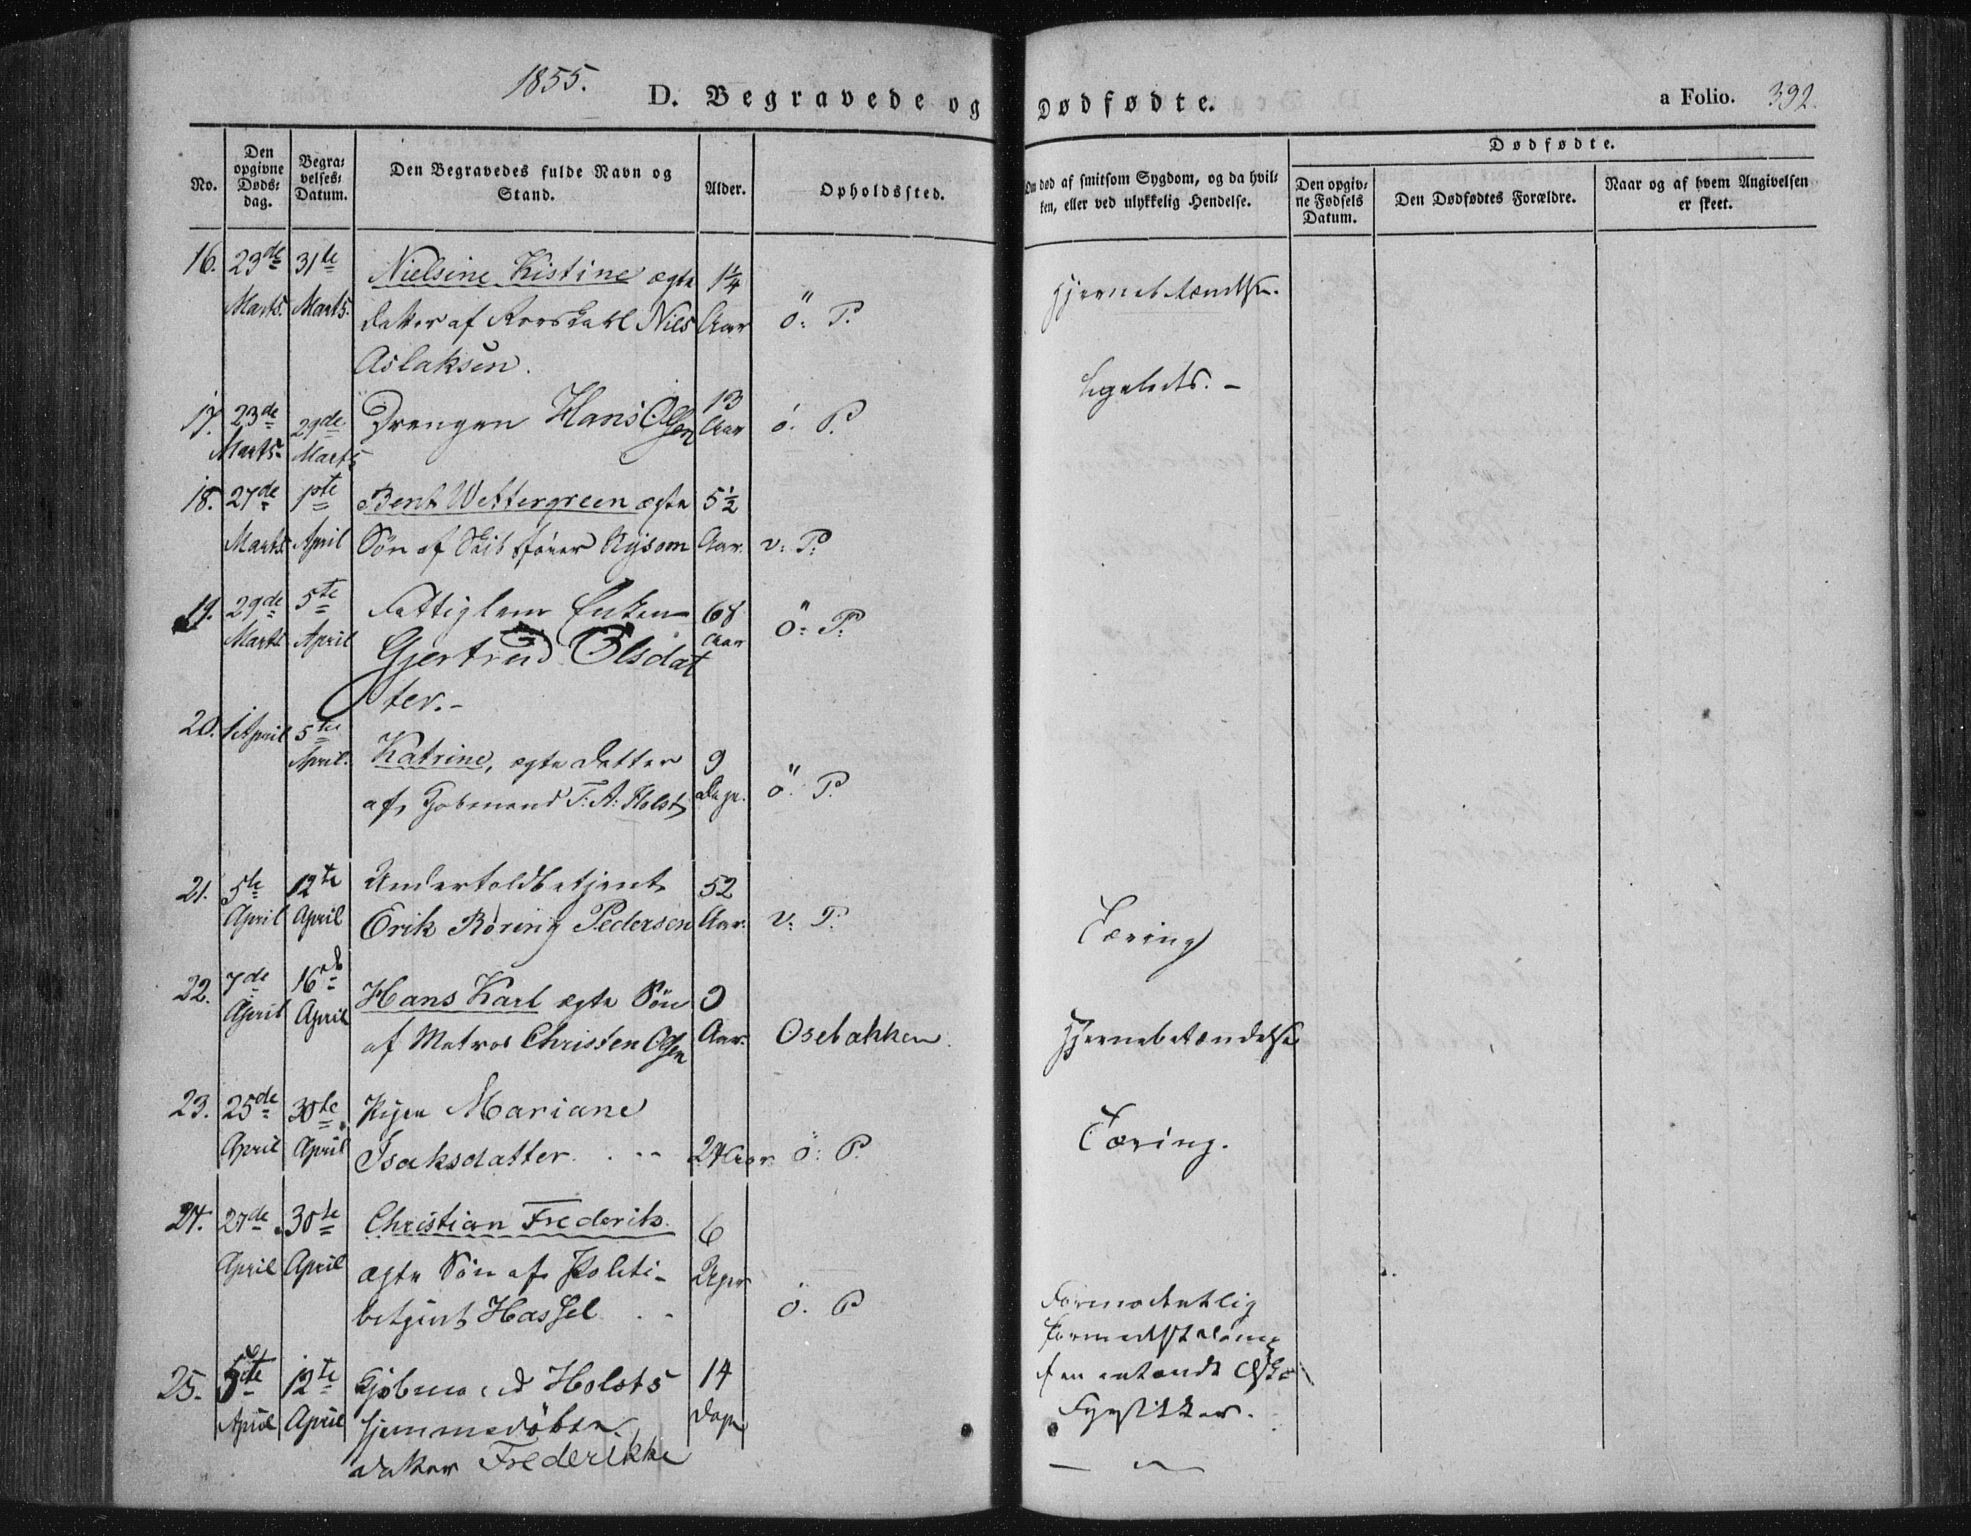 1855.
D. Begravede og Dødfødte.
a Folio. 392.
No.
Den opgivne Døds: dag.
Begra: velses: Datum.
Den Begravedes fulde Navn og Stand.
Alder.
Opholdssted.
Om død af smitsom Sygdom, og da hvil:
ken, eller ved ulykkelig Hendelse.
Dødfødte.
Den opgiv: ne Fødsels Datum.
Den Dødfødtes Forældre.
Naar og af hvem Angivelsen er skeet.
16. 23de 31te Nielsine Kistine ægte 1¼
Marts. Marts. datter af Nils Aar ö: P.
Aslaksen.
Hjernebetændelse.
17. 23de 29de Drengen Hans Olsen 13 Aar ö. P.
Marts Marts
ligeledes. -
18. 27de 1ste Bent Wettergreen ægte 5½
Marts April Søn af Skibsfører Nysom Aar. v: P:
19. 29de 5te Fattiglem Enken 68
Marts April Gjertrud Olsdat Aar ö: P:
ter. -
20. 1 April 5te
April. Katrine, ægte datter 9
af Kjøbmand T: A: Holst Dage. ö. P.
21. 5te 12te Undertoldbetjent 52
April April Erik Röring Pedersen Aar. v: P.
Tæring
22. 7de 16de Hans Karl ægte Søn 9
April April af Matros Christen Olsen Aar. Osebakken.
Hjernebetændelse
23. 25de 30te Pigen Mariane
April April Isaksdatter. 24 Aar ö: P.
Tæring.
24. 27de 30te Christian Frederik
April April ægte Søn af Politi- 6
betjent Hassel ö. P
Formodentlig
Fyrstikker.
25. 5te 12te Kjøbmand Holsts 14
April April hjemmedøbte Dage
datter Frederikke